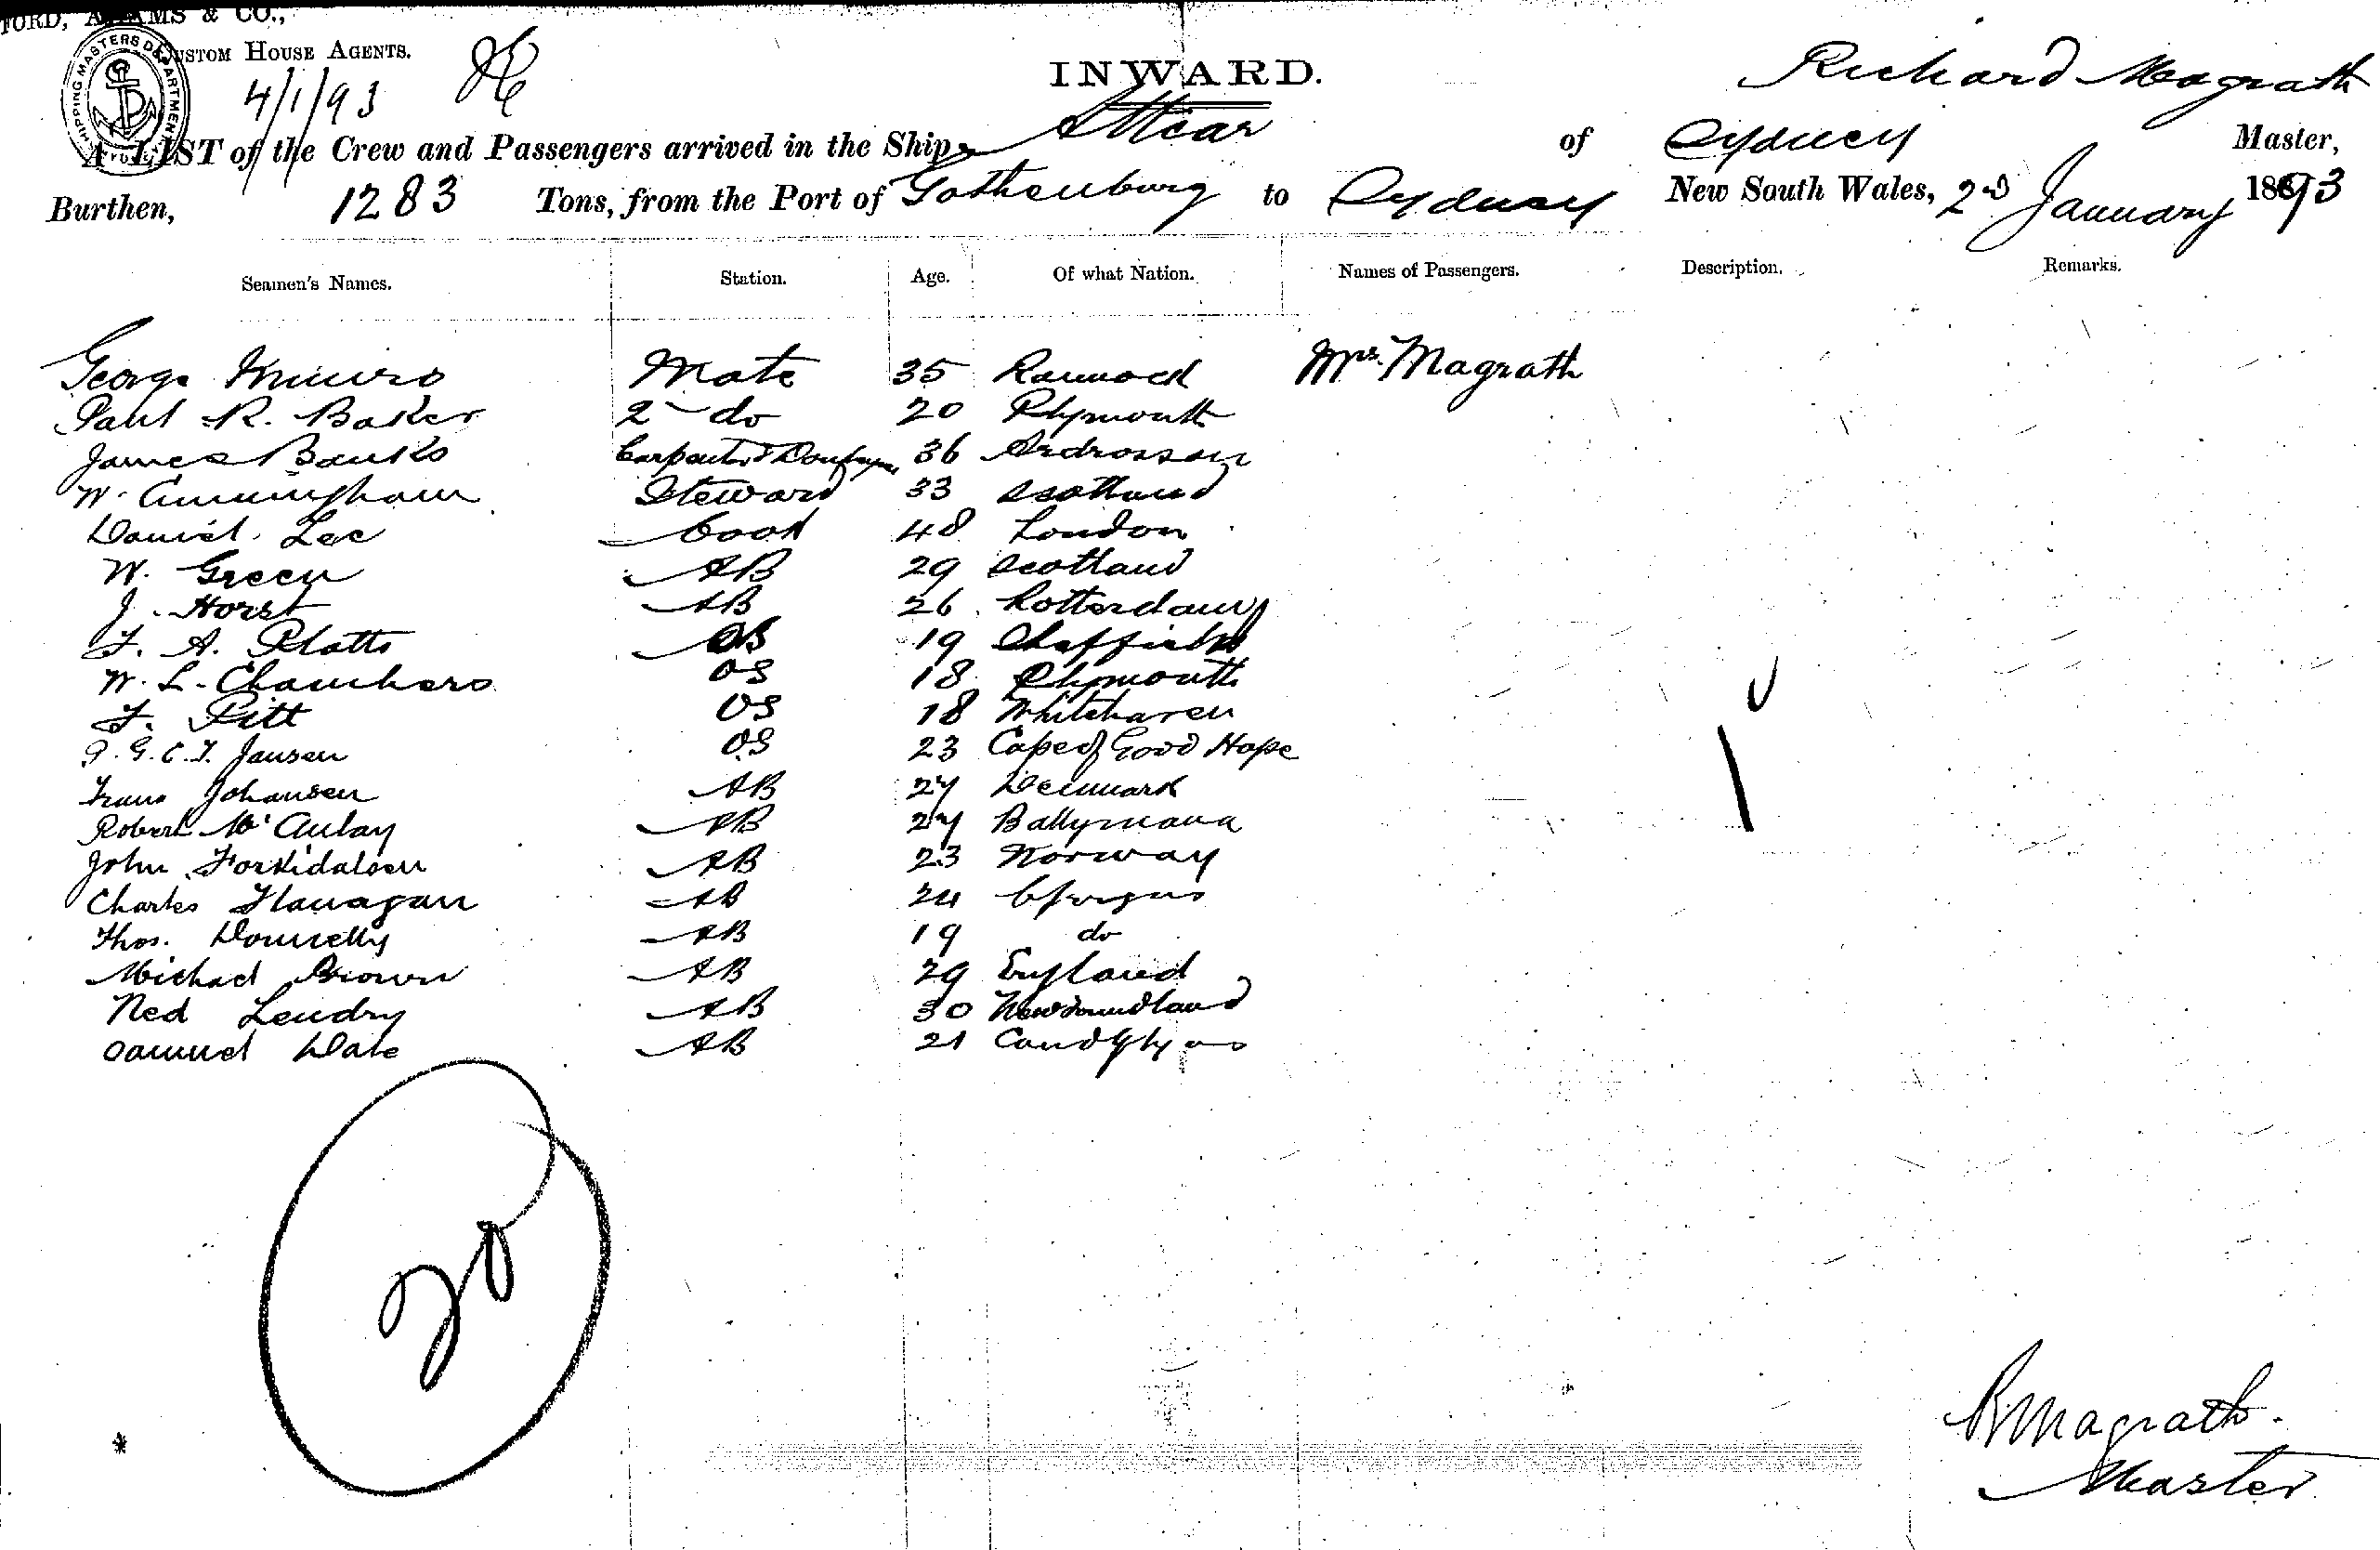 FORD, ADAMS & CO.,
CUSTOM HOUSE AGENTS.
SHIPPING MASTERS DEPARTMENT
4/1/93
INWARD.
Richard Magrath
A LIST of the Crew and Passengers arrived in the Ship Attear of Sydney Master,
Burthen, 1283 Tons, from the Port of Gothenburg to Sydney New South Wales, 2nd January 1893
Seamen's Names. Station. Age. Of what Nation. Names of Passengers. Description. Remarks.
George Munro Mate 35 Rannock Mrs. Magrath
Paul R. Baker 2 do 20 Plymouth
James Banks Carpenter & 36 Ardrossan
W. Cunningham Steward 33 Scotland
Daniel Lee Cook 48 London
W. Green AB 29 Scotland
J. Horst AB 26 Rotterdam
F. A. Platts AB 19 Sheffield
W. L. Chambers OS 18 Plymouth
F. Pitt OS 18 Whitehaven
P. G. C. J. Jansen OS 23 Cape of Good Hope
Frans Johansen AB 27 Denmark
Robert McAulay AB 27 Ballymana
John Torkidalsen AB 23 Norway
Charles Flanagan AB 24 Cfergus
Thos. Donnelly AB 19 do
Michael Brown AB 29 England
Ned Lendry AB 30 Newfoundland
Samuel Date AB 21
20
R Magrath.
Master